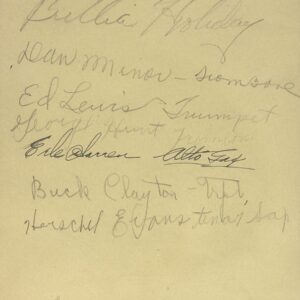 Billie Holiday
Dan Minor - Trombone
Ed Lewis - Trumpet
George Hunt
Earle Warren Alto Sax
Buck Clayton - Tpt.
Herschel Evans tenor sax